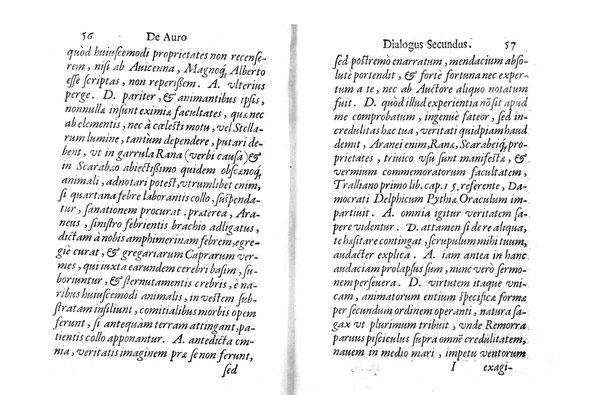 56 De Auro
quòd huiuscemodi proprietates non recense-
rem, nisi ab Auicenna, Magnoq; Alberto
esse scriptas, non reperißem. A. vlterius
perge. D. pariter, & animantibus ipsis,
nonnullæ insunt eximiæ facultates, quæ nec
ab elementis, nec à cœlesti motu, vel Stella-
rum lumine, tantùm dependere, putari de-
bent, vt in garrula Rana (verbi causa) &
in Scarabæo abiectißimo quidem obscænoq;
animali, adnotari potest, vtrumlibet enim,
si quartana febre laborantis collo, suspenda-
tur, sanationem procurat. præterea, Ara-
neus, sinistro febrientis brachio adligatus,
dictam à nobis amphimerinam febrem, egre-
giè curat, & gregariarum Caprarum ver-
mes, qui iuxta earundem cerebri basim, su-
boriuntur, & sternutamentis crebris, è na-
ribus huiuscemodi animalis, in vestem sub-
stratam insiliunt, comitialibus morbis opem
ferunt, si antequàm terram attingant, pa-
tientis collo apponantur. A. antedicta om-
nia, veritatis imaginem præ se non ferunt,
sed
Dialogus Secundus. 57
sed postremò enarratum, mendacium abso-
lutè portendit, & fortè fortuna nec exper-
tum a te, nec ab Auctore aliquo notatum
fuit. D. quòd illud experientia nõsit apud
me comprobatum, ingenuè fateor, sed in-
credulitas hac tua, veritati quidpiam haud
demit, Aranei enim, Ranæ, Scarabeiq; pro-
prietates, triuico vsu sunt manifestæ, &
vermium commemoratorum facultatem,
Tralliano primo lib. cap. 15. referente, Da-
mocrati Delphicum Pythiæ Oraculum im-
partiuit. A. omnia igitur veritatem sa-
pere videntur. D. attamen si de re aliqua,
te hæsitare contingat, scrupulum mihi tuum,
audacter explica. A. iam antea in hanc
audaciam prolapsus sum, nunc verò sermo-
nem perseuera. D. virtutem itaque vni-
cam, animatorum entium specificæ formæ
per secundum ordinem operanti, natura sa-
gax vt plurimum tribuit, vnde Remorra
paruus pisciculus supra omnē credulitatem,
nauem in medio mari, impetu ventorum
I exagi-